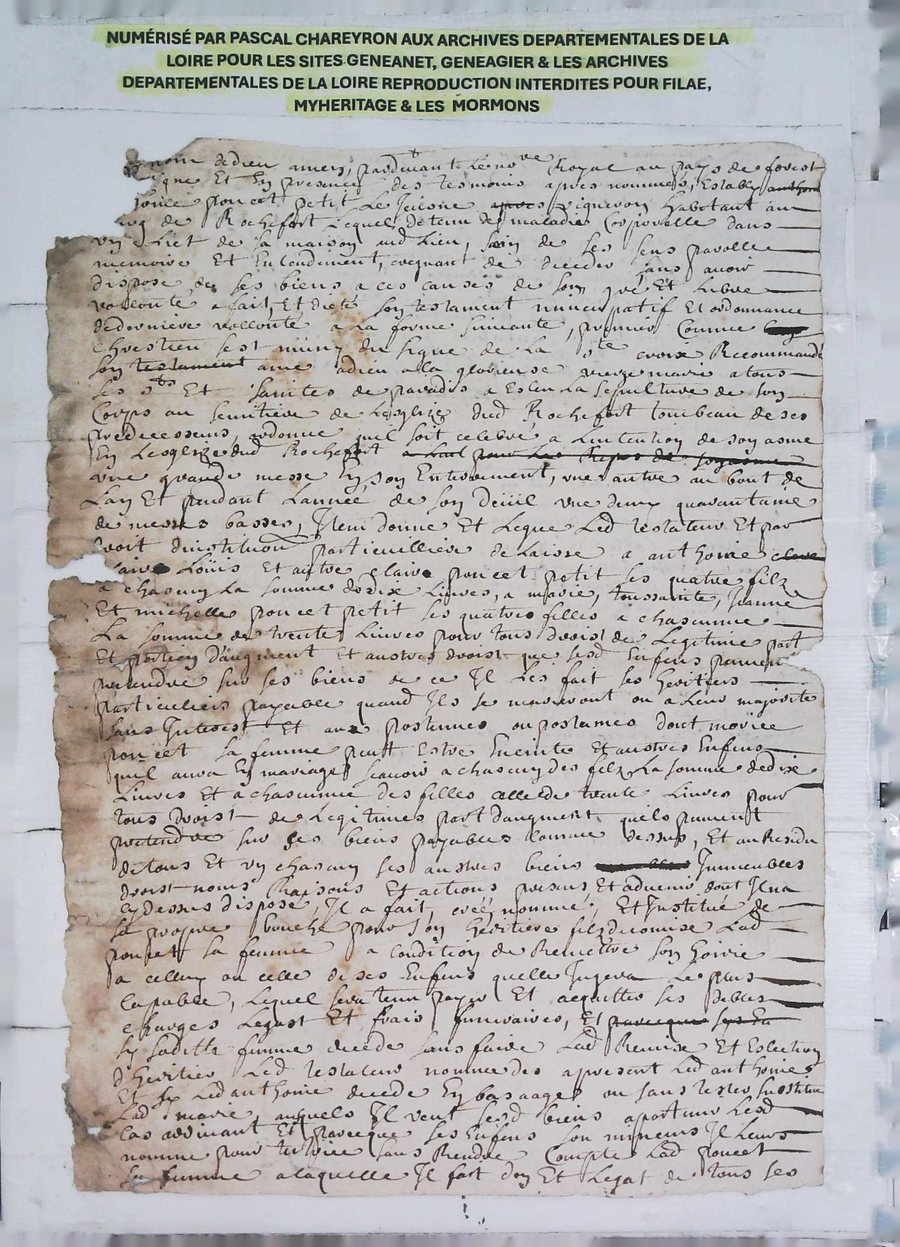 NUMÉRISÉ PAR PASCAL CHAREYRON AUX ARCHIVES DEPARTEMENTALES DE LA
LOIRE POUR LES SITES GENEANET, GENEAGIER & LES ARCHIVES
DEPARTEMENTALES DE LA LOIRE REPRODUCTION INTERDITES POUR FILAE,
MYHERITAGE & LES MORMONS
nom de dieu amen, pardevant le no.re Royal au pays de forest
Et En presence des tesmoins apres nommés, Estably
poncet petit Le Jeusne vigneron habitant au
de Rochefort Lequel detenu de maladie Corporelle dans
un Lict de sa maison aud Lieu, sain de ses sens parolle
memoire Et Entendement, craignant de deceder sans avoir
dispose de ses biens a ces causes de son gré Et Libre
vollonté a fait, Et dicté son testament nuncupatif Et ordonnance
de derniere vollonté a la forme suivante, premier Comme
Chrestien s'est muny du signe de La s.te croix Recommandé
son testament ame a dieu a la glorieuse vierge marie a tous
les s.ts Et saintes de paradis a Esleu La sepulture de son
Corps au semitiere de Leglize dud Rochefort tombeau de ses
predecesseurs, ordonne quil soit celebré a Lintention de son asme
En Lesglize dud Rochefort
une grande messe En son Enterrement, une autre au bout de
Lan Et pendant Lannee de son deüil une demy quarantaine
de messes basses, Item donne Et Legue Led testateur Et par
droit dinstitution particuilliere delaisse a anthoine
Loüis Et autre claire poncet petit ses quatre filz
a chascun La somme de dix Livres, a marie, toussainte, Jeanne
Et michelle poncet petit ses quattres filles a chascune
La somme de trente Livres pour tous droist de Legitime part
Et portion daugment Et austres droist que sesd Enfens peuvent
pretendre sur ses biens de ce Il Les fait ses heritiers
particuliers payable quand Ils se marieront ou a Leur majorité
sans Interest Et aux postumes ou postumes dont
poncet sa femme peust Estre Enceinte Et austres Enfens
quil aura En mariage scavoir a chascun des filz La somme de dix
Livres Et a chascune des filles celle de trente Livres pour
tous droist de Legitimes part daugment quils peuvent
pretendre sur ses biens payables comme dessus, Et au Residu
de tous Et un chascun ses austres biens Immeubles
droist noms Raisons Et actions presens Et advenir dont Il na
cy dessus disposé, Il a fait, creé, nommé, Et Institué de
sa propre bouche pour son heritiere La d
poncet sa femme a condition de Remettre son hoirie
a celluy ou celle de ses Enfens quelle Jugera Le plus
Capable, Lequel sera tenu payer Et acquitter ses debtes
charges Legast Et frais funeraires, Et
sy laditte femme decede sans faire Lad Remise Et Eslection
dheritier Led testateur nomme des apresent Led anthoine
Et sy Led anthoine decede En bas aage ou sans tester substitue
Lad marie, auquels Il veut sesd biens
cas advenant Et parceque ses Enfens son mineurs Il Leurs
nomme pour tutrice sans Rendre Compte Lad poncet
sa femme a laquelle Il fait don Et Legat de tous ses